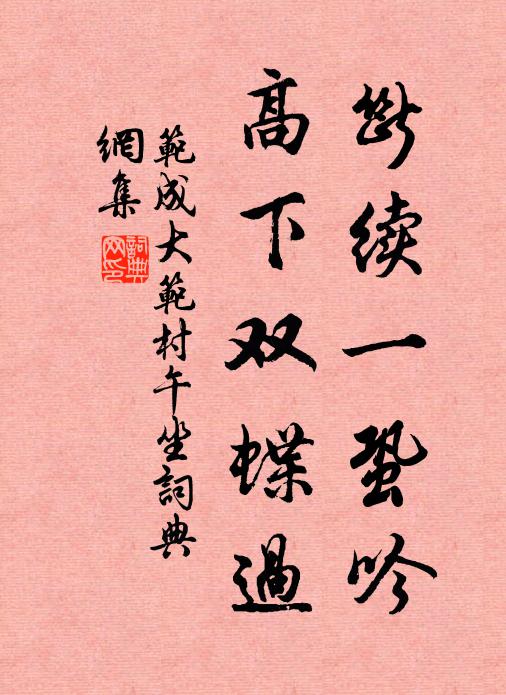 断续一蛩吟
高下双蝶過
範成大範村午坐詞典
網集
詞典
网印